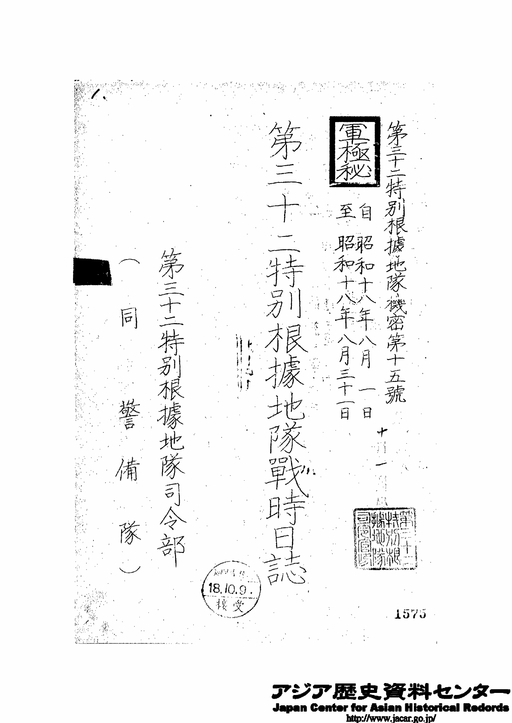 第三十二特別根據地隊機密第十五號
軍極秘
自昭和十八年八月一日
至昭和十八年八月三十一日
第三十二特別根據地隊戰時日誌
第三十二特別根據地隊司令部
(同警備隊)
18.10.9.
接受
1575
アジア歴史資料センター
Japan Center for Asian Historical Records
http://www.jacar.go.jp/